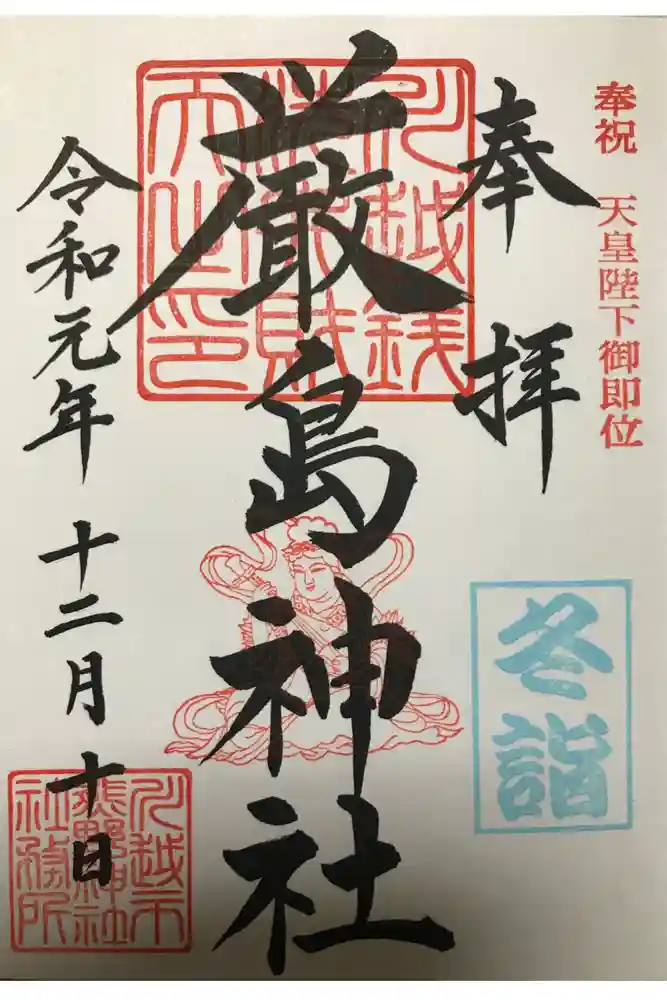 奉祝 天皇陛下御即位
奉拝
冬詣
厳島神社
川越銭
洗弁財
天之印
令和元年 十二月 十日
川越市
熊野神社
社務所